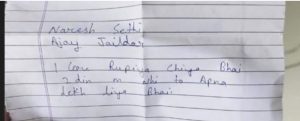 Naresh Sethi
Ajay Jaildar
1 Crore Rupiya Chiya Bhai
2 din m nhi to Apna
Dekh liyo Bhai